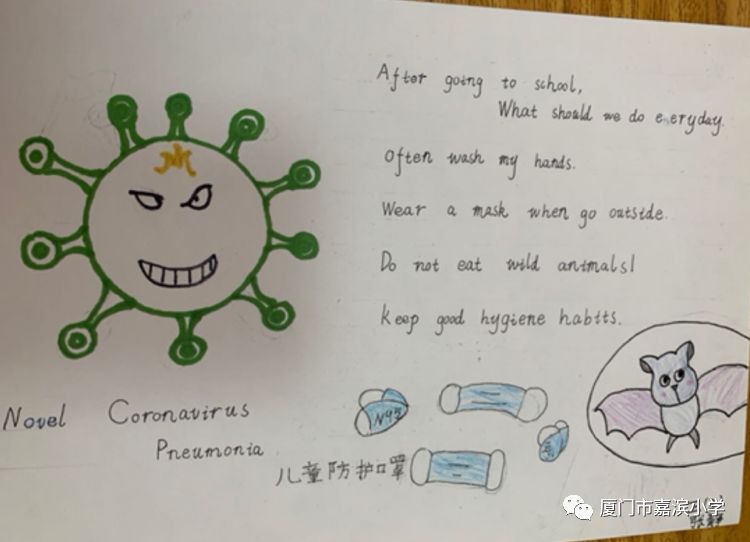 After going to school,
What should we do everyday.
Often wash my hands.
Wear a mask when go outside.
Do not eat wild animals!
Keep good hygiene habits.
Novel Coronavirus
Pneumonia
N95
儿童防护口罩
厦门市嘉滨小学